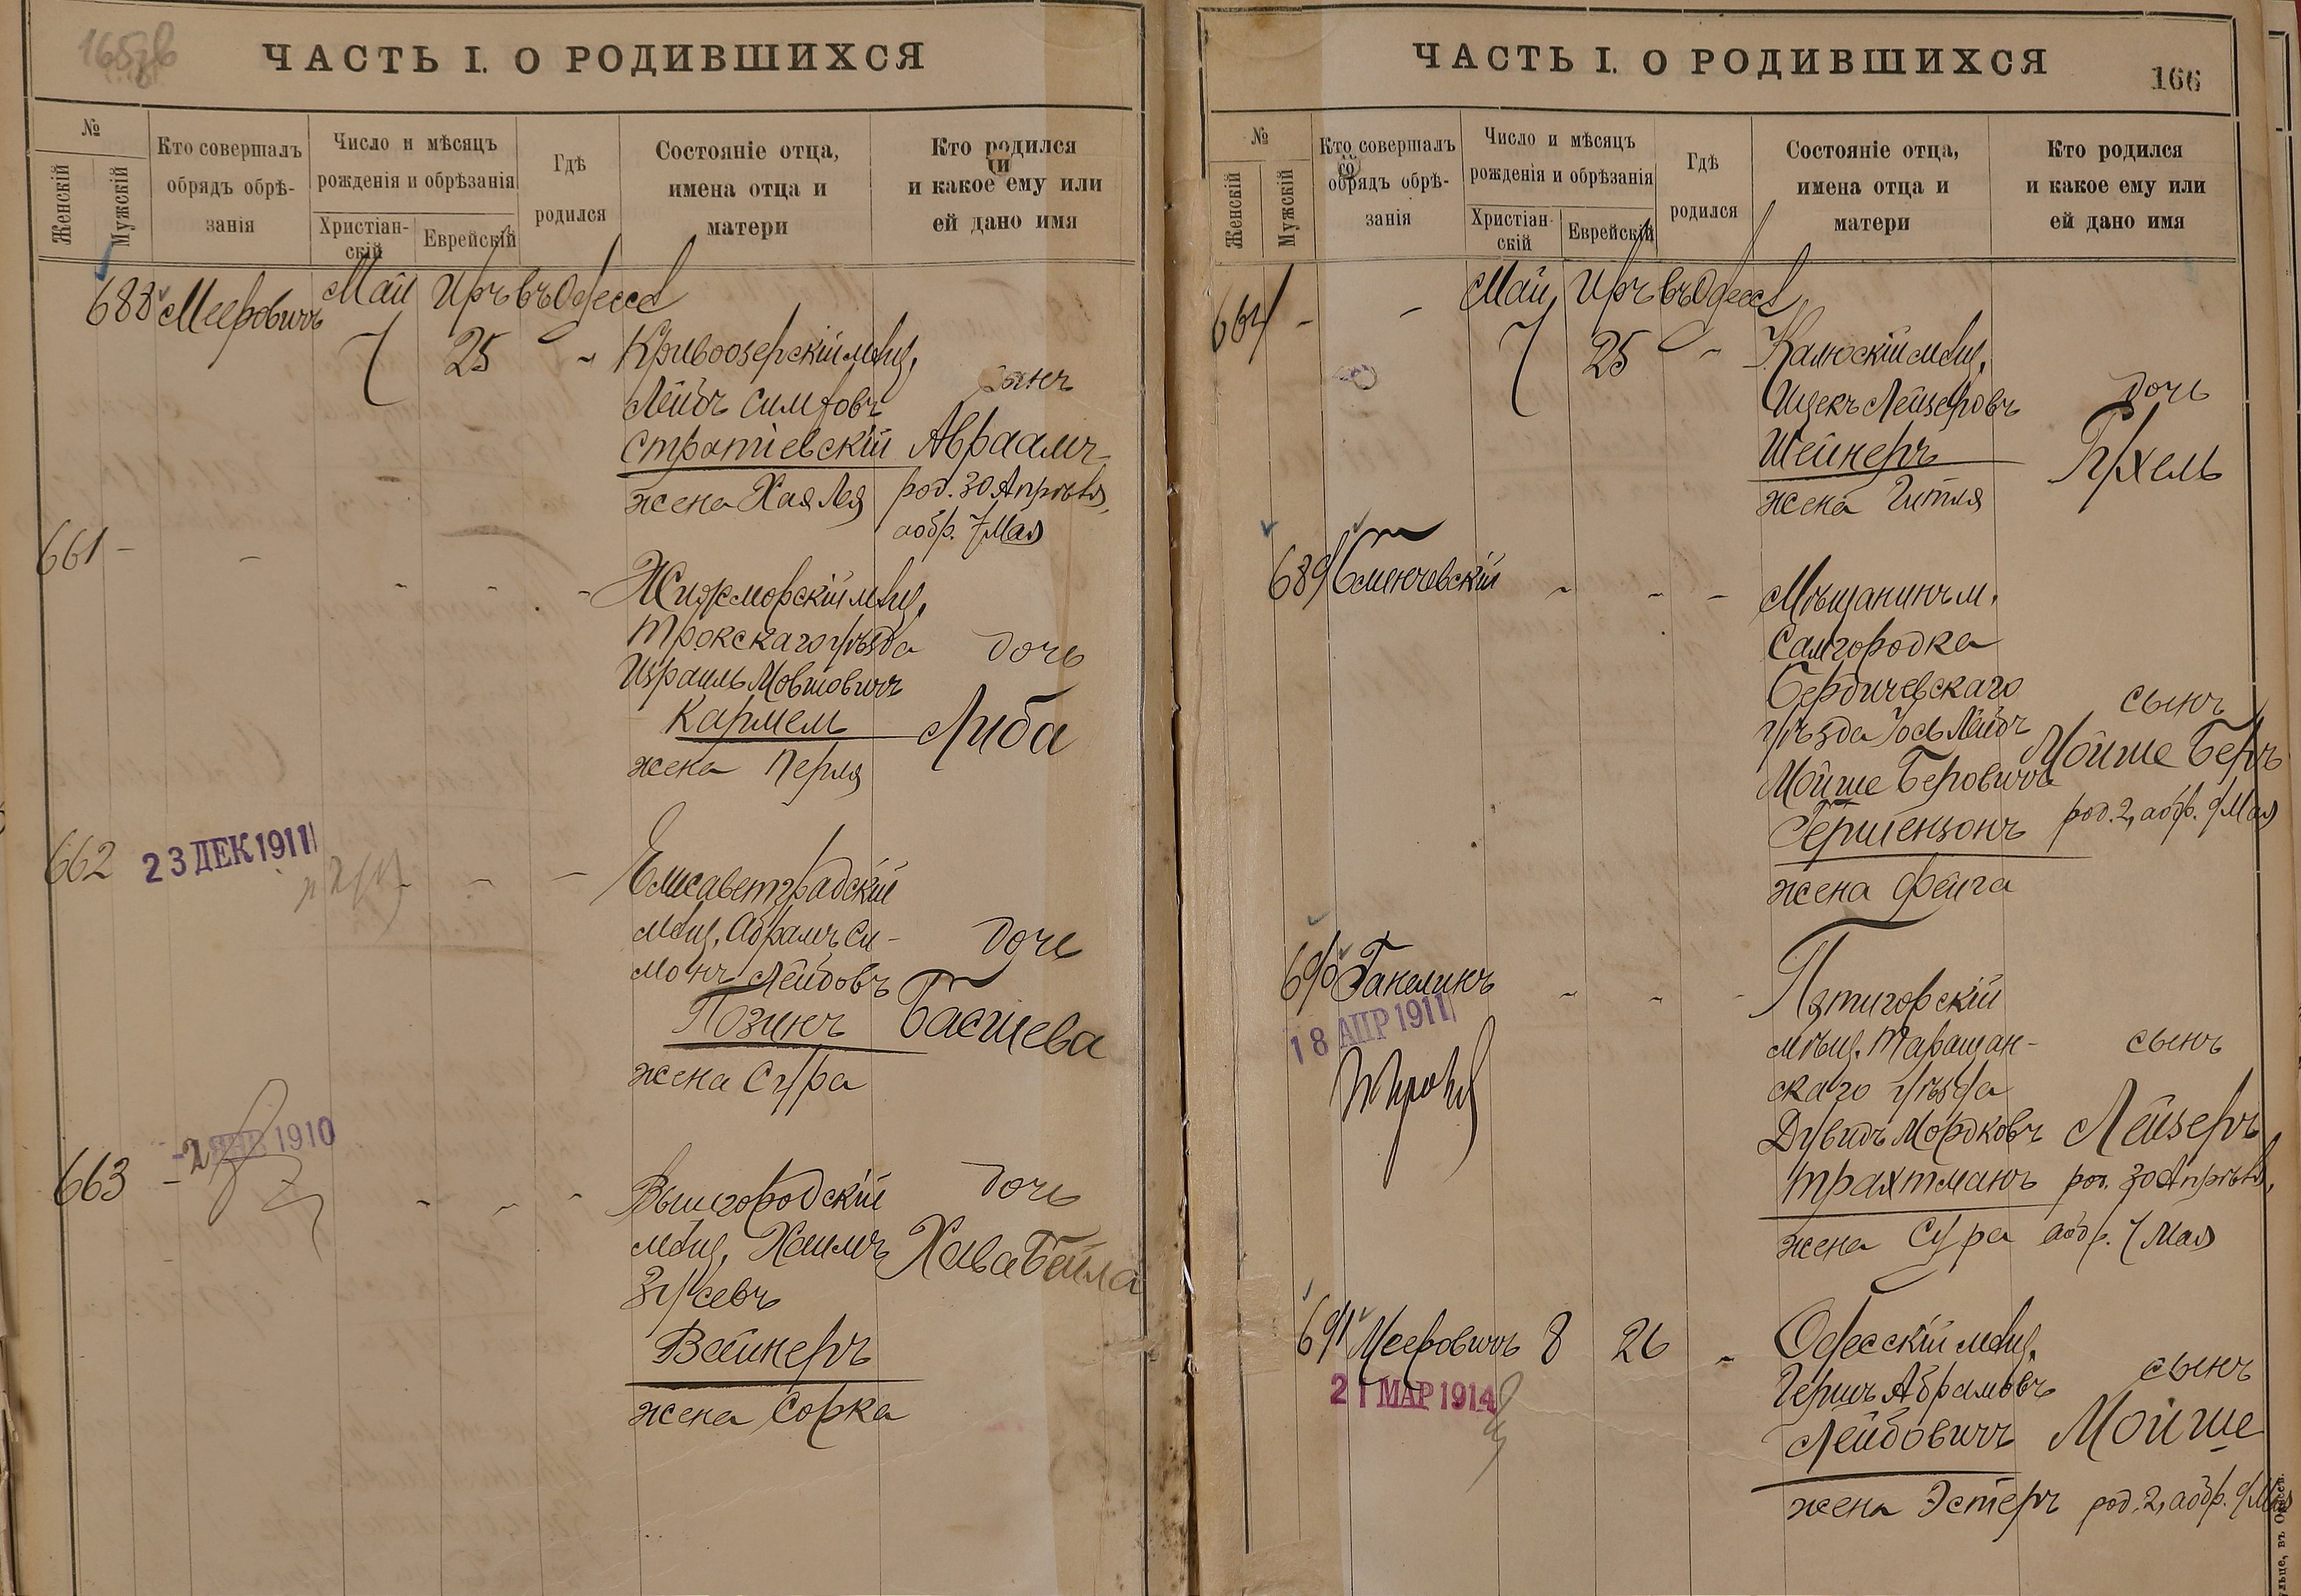 ЧАСТЬ I. О РОДИВШИХСЯ
№
Женскій
Мужскій
Кто совершалъ
обрядъ обрѣ-
занія
Число и мѣсяцъ
рожденія и обрѣзанія
Христіан-
скій
Еврейскій
Гдѣ
родился
Состояніе отца,
имена отца и
матери
Кто родился
и какое ему или
ей дано имя
688 Мееровичъ Май Иръ въ Одессѣ
7 25 Кривоозерскій мѣщ.
Лейбъ Симховъ
Стратіевскій
жена Хая Лея
сынъ
Авраамъ
род. 30 Апрѣля,
а обр. 7 Мая
661 - -
Жижморскій мѣщ.
Трокскаго уѣзда
Израиль Мовшовичъ
Кармель
жена Перля
дочь
Либа
662 23 ДЕК 1911
Елисаветградскій
мѣщ. Абрамъ Си-
монъ Лейбовъ
Позинъ
жена Сура
дочь
Басшева
663 - 2 ЯНВ 1910
Вышгородскій
мѣщ. Хаимъ
Зусевъ
Вайнеръ
жена Сорка
дочь
Хава Бейла
ЧАСТЬ I. О РОДИВШИХСЯ
166
№
Женскій
Мужскій
Кто совершалъ
обрядъ обрѣ-
занія
Число и мѣсяцъ
рожденія и обрѣзанія
Христіан-
скій
Еврейскій
Гдѣ
родился
Состояніе отца,
имена отца и
матери
Кто родился
и какое ему или
ей дано имя
664 - - Май Иръ въ Одессѣ
7 25 Калюскій мѣщ.
Ицекъ Лейзеровъ
Шейнеръ
жена Гитля
дочь
Рухель
689 Сменчевскій
Мѣщанинъ м.
Самгородка
Бердичевскаго
уѣзда Іось Лейбъ
Мойше Беровичъ
Гершензонъ
жена Фейга
сынъ
Мойше Беръ
род. 2, а обр. 9 Мая
690 Ганелинъ
18 АПР 1911
Пятигорскій
мѣщ. Таращан-
скаго уѣзда
Дувидъ Мордковъ
Трахтманъ
жена Сура
сынъ
Лейзеръ
род. 30 Апрѣля,
а обр. 7 Мая
691 Мееровичъ 8 26
21 МАР 1914
Одесскій мѣщ.
Гершъ Абрамовъ
Лейбовичъ
жена Эстеръ
сынъ
Мойше
род. 2, а обр. 9 Мая